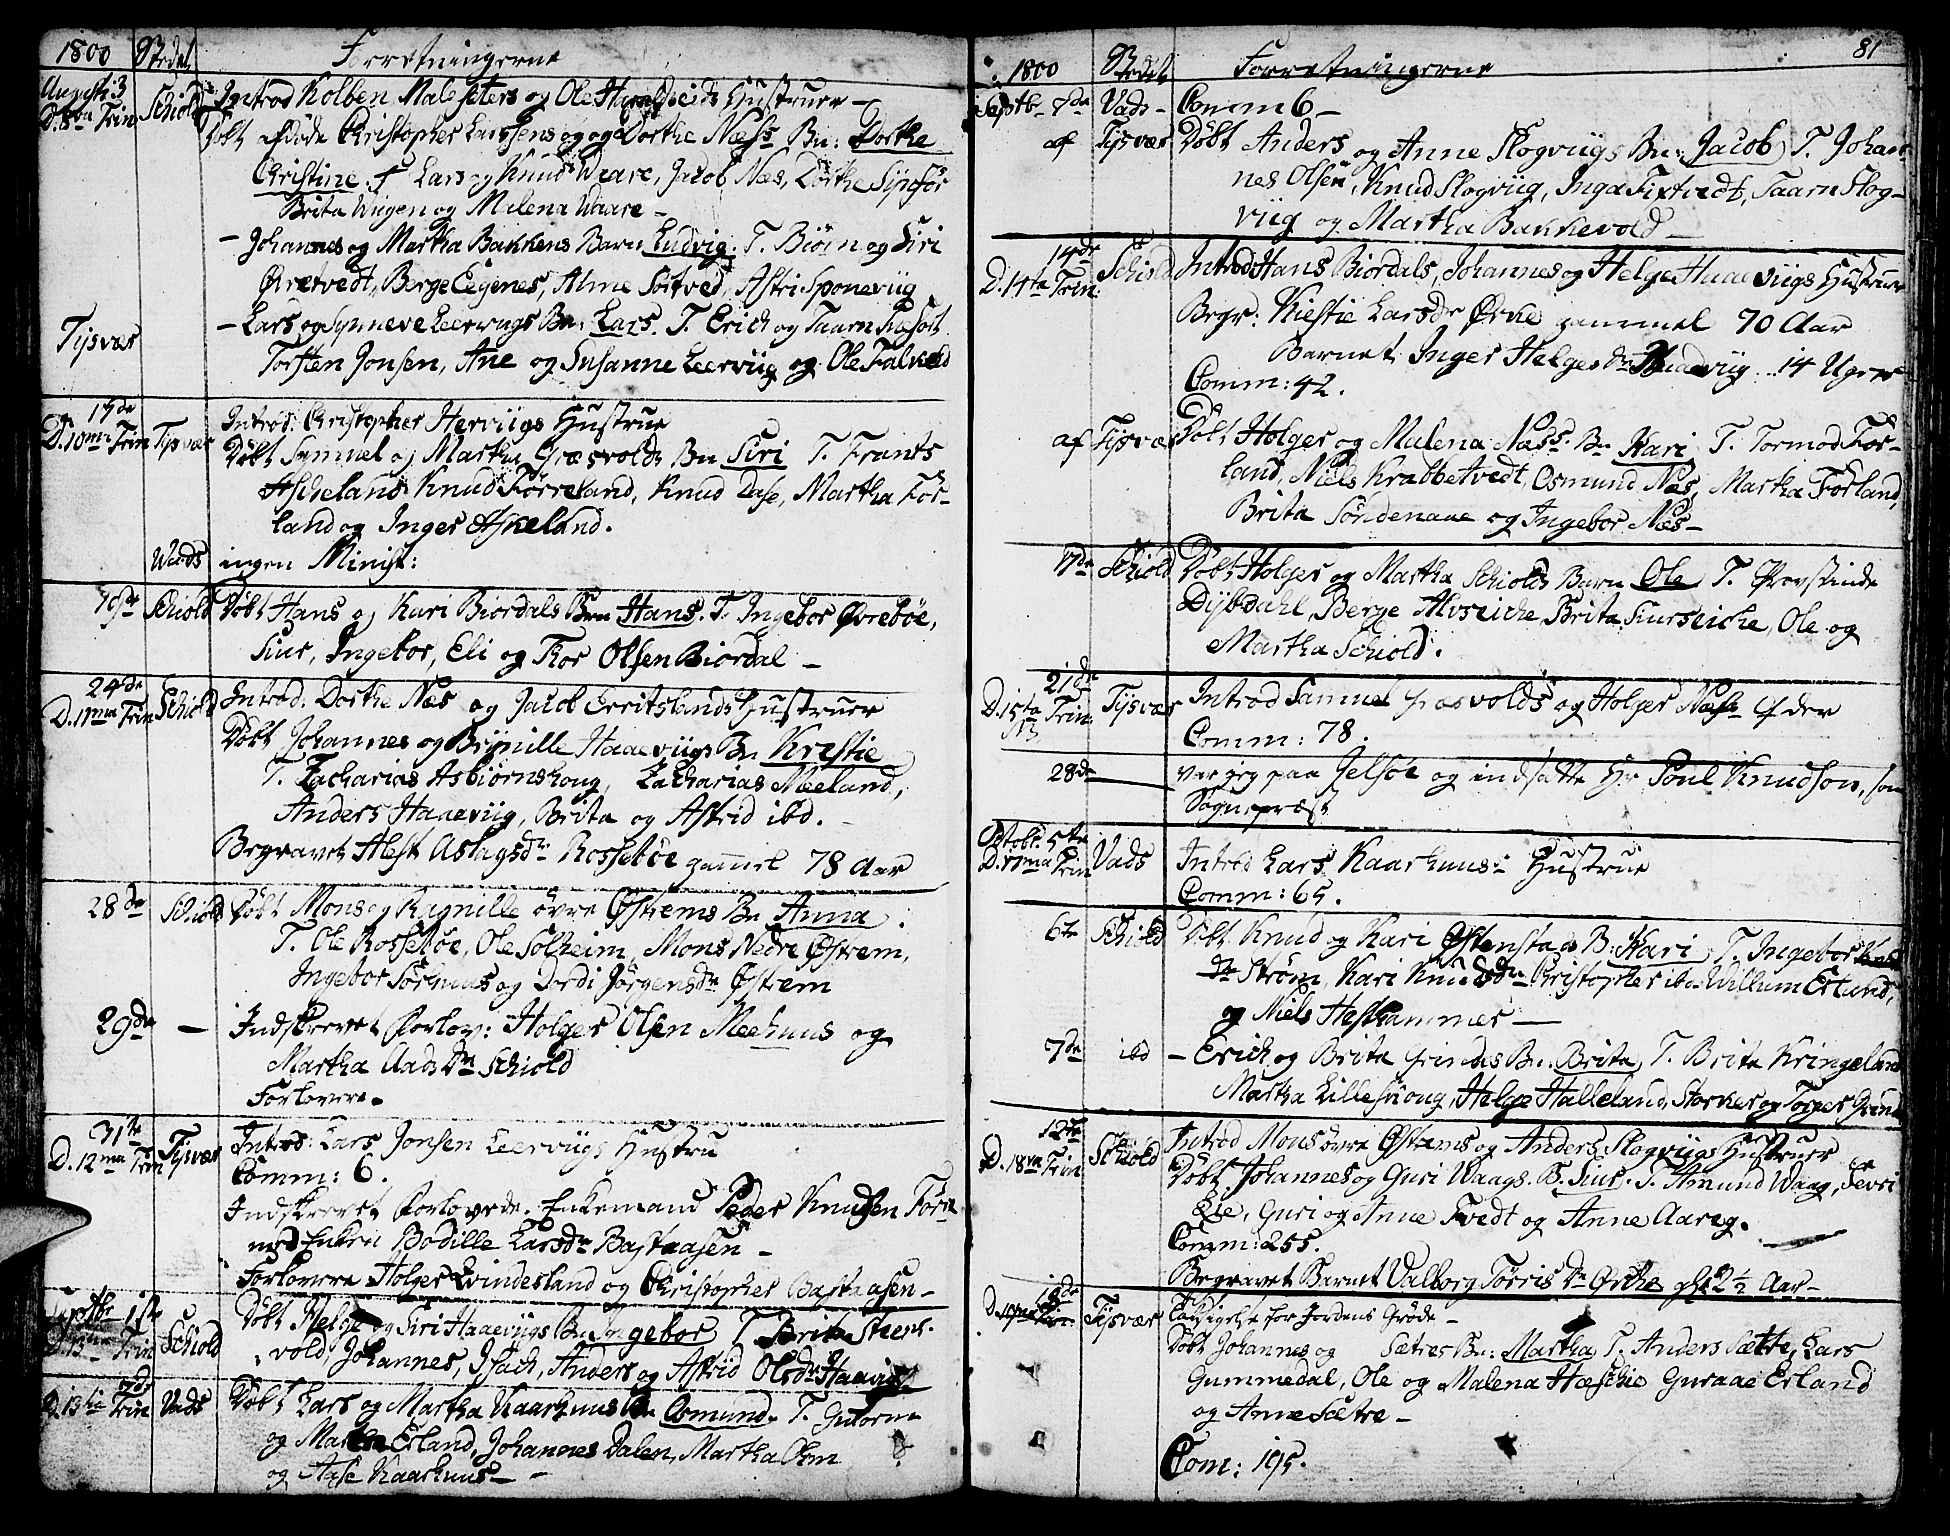 1800 Stedet Forretningerne
Augusti 3
D. 8va Trin Schiold Introd Kolben Malesæters og Ole Hustruer –
Døbt afdøde Christopher Larssens og Dorthe Næss Bn: Dorthe
Christine. Lars og Knud Waare, Jacob Næs, Dorthe
Brita Wiigen og Malena Waare –
– Johannes og Martha Bakkens Barn Ludvig. T. Biørn og Siri
Øretvedt, Berge Eegenes, Alme Sørtved, Astri Sponeviig
– Lars og Synneve Leerviigs Bn: Lars. T. Erich og Taarn
Tysvær
Torsten Jonsen, Ane og Susanne Leerviig og Ole Falkeld
17de
D. 10ma Trin Tysvær Introd: Christopher Herviigs Hustrue
Døbt Symmel og Martha Græsvolds Bn Siri T. Frants
Aschelans Knud Førreland, Knud Dase, Martha Før-
land og Inger Askeland.
Wads ingen Minist:
19de Schiold Døbt Hans og Kari Biordals Bn Hans. T. Ingebor Øvrebøe,
Siur, Ingebor, Eli og Thor Olsen Biordal –
24de
D. 11ma Trin Schiold Introd: Dorthe Næs og Jacob Erritslands Hustruer
Døbt Johannes og Brynille Haaeviigs Bn Krestie
T. Zacharias Asbiørnshoug, Zacharias Meeland,
Anders Haaeviig, Brita og Astrid ibd.
Begravet Alest Aslagsdr Rossebøe gammel 78 Aar
28de Schiold Døbt Mons og Ragnille øvre Østrems Bn Anna.
T. Ole Rossebøe, Ole Solheim, Mons Nedre Østrem,
Ingebor Sørenæs og Dordi Jørgensdr Østrem
29de – Indskrevet Forlov: Holger Olsen Meehuus og
Martha Aadsdr Schiold
Forlovere.
31te
D. 12ma Trin Tysvær Introd: Lars Jonsen Leerviigs Hustru
Comm: 6.
Indskrevet Forlovede. Enkemand Peder Knudsen Førre
med Enken Bodille Larsdr Bastaasen –
Forlovere Holger Qvindesland og Christopher Bastaasen –
Septbr 1ste
Schiold Døbt Helge og Siri Haaeviigs Bn Ingebor T. Brita Steens-
vold, Johannes, Isach, Anders og Astrid Olsdr Haaviig
7de
D. 13tia Trin Vads Døbt Lars og Martha Kaarhuus Bn Osmund. T. Gutorm
og Martha Erland, Johannes Dalen, Martha Ohm
og Aase Kaarhuus –
81
1800 Stedet Forretningerne
Septbr 7de Vads – Comm 6 –
af Tysvær Døbt Anders og Anne Slogviigs Bn: Jacob, T. Johan
nes Olsen, Knud Slogviig, Inga Tixtvedt, Taarn Slog-
viig og Martha Bakkevold –
14de
D. 14ta Trin: Schiold Introd Hans Biordals, Johannes og Helge Haaeviigs Hustruer
Begr: Kiestie Larsdr Ørke gammel 70 Aar
Barnet Inger Helgesdr Haaeviig 14 Uger
Comm: 42.
af Tysvær Døbt Holger og Malena Næss Bn Kari T. Tormod Før-
land, Niels Krabbetvedt, Osmund Næs, Martha Førland,
Brita Søndenaae og Ingebor Næs –
17de Schiold Døbt Holger og Martha Schiolds Barn Ole T. Provstinde
Dybdahl, Berge Alvseiche, Brita Siurseiche, Ole og
Martha Schiold.
21de
D. 15ta Trin: Tysvær Introd Samuel Græsvolds og Holger Næss
Comm: 78.
28de – var jeg paa Jelsøe og indsatte Hr Poul Knudson, som
Sognepræst
Octobr. 5te
D. 17ma Trin Vads Introd Lars Kaarhuuses Hustrue
Comm: 65.
6te Schiold Døbt Knud og Kari Østenstads B: Kari, T. Ingebor
dr Strøm, Kari Knudsdr Christopher ibd Willum Erland,
og Niels Hesthammer –
7de ibd – Erich og Brita Grindes Bn: Brita, T. Brita Kringeland
Martha Lilleskoug, Helge Halleland, Storker og Torger Grinde
12te
D. 18va Trin Schiold Introd Mons øvre Østrems og Anders Slogviigs Hustruer
Døbt Johannes og Guri Waags. B. Siur. T. Amund Waag, Sevri
Eie, Guri og Anne Tvedt og Anne Aareg.
Comm: 255.
Begravet Barnet Valborg Tørrisdr Ørke 2½ Aar –
Tysvær Taksigelse for Jordens Grøde –
Døbt Johannes og Sætres Bn: Martha T. Anders Sætre, Lars
Gummedal, Ole og Malena Hæschie Guraae Erland
og Anne Sætre –
Com: 195.